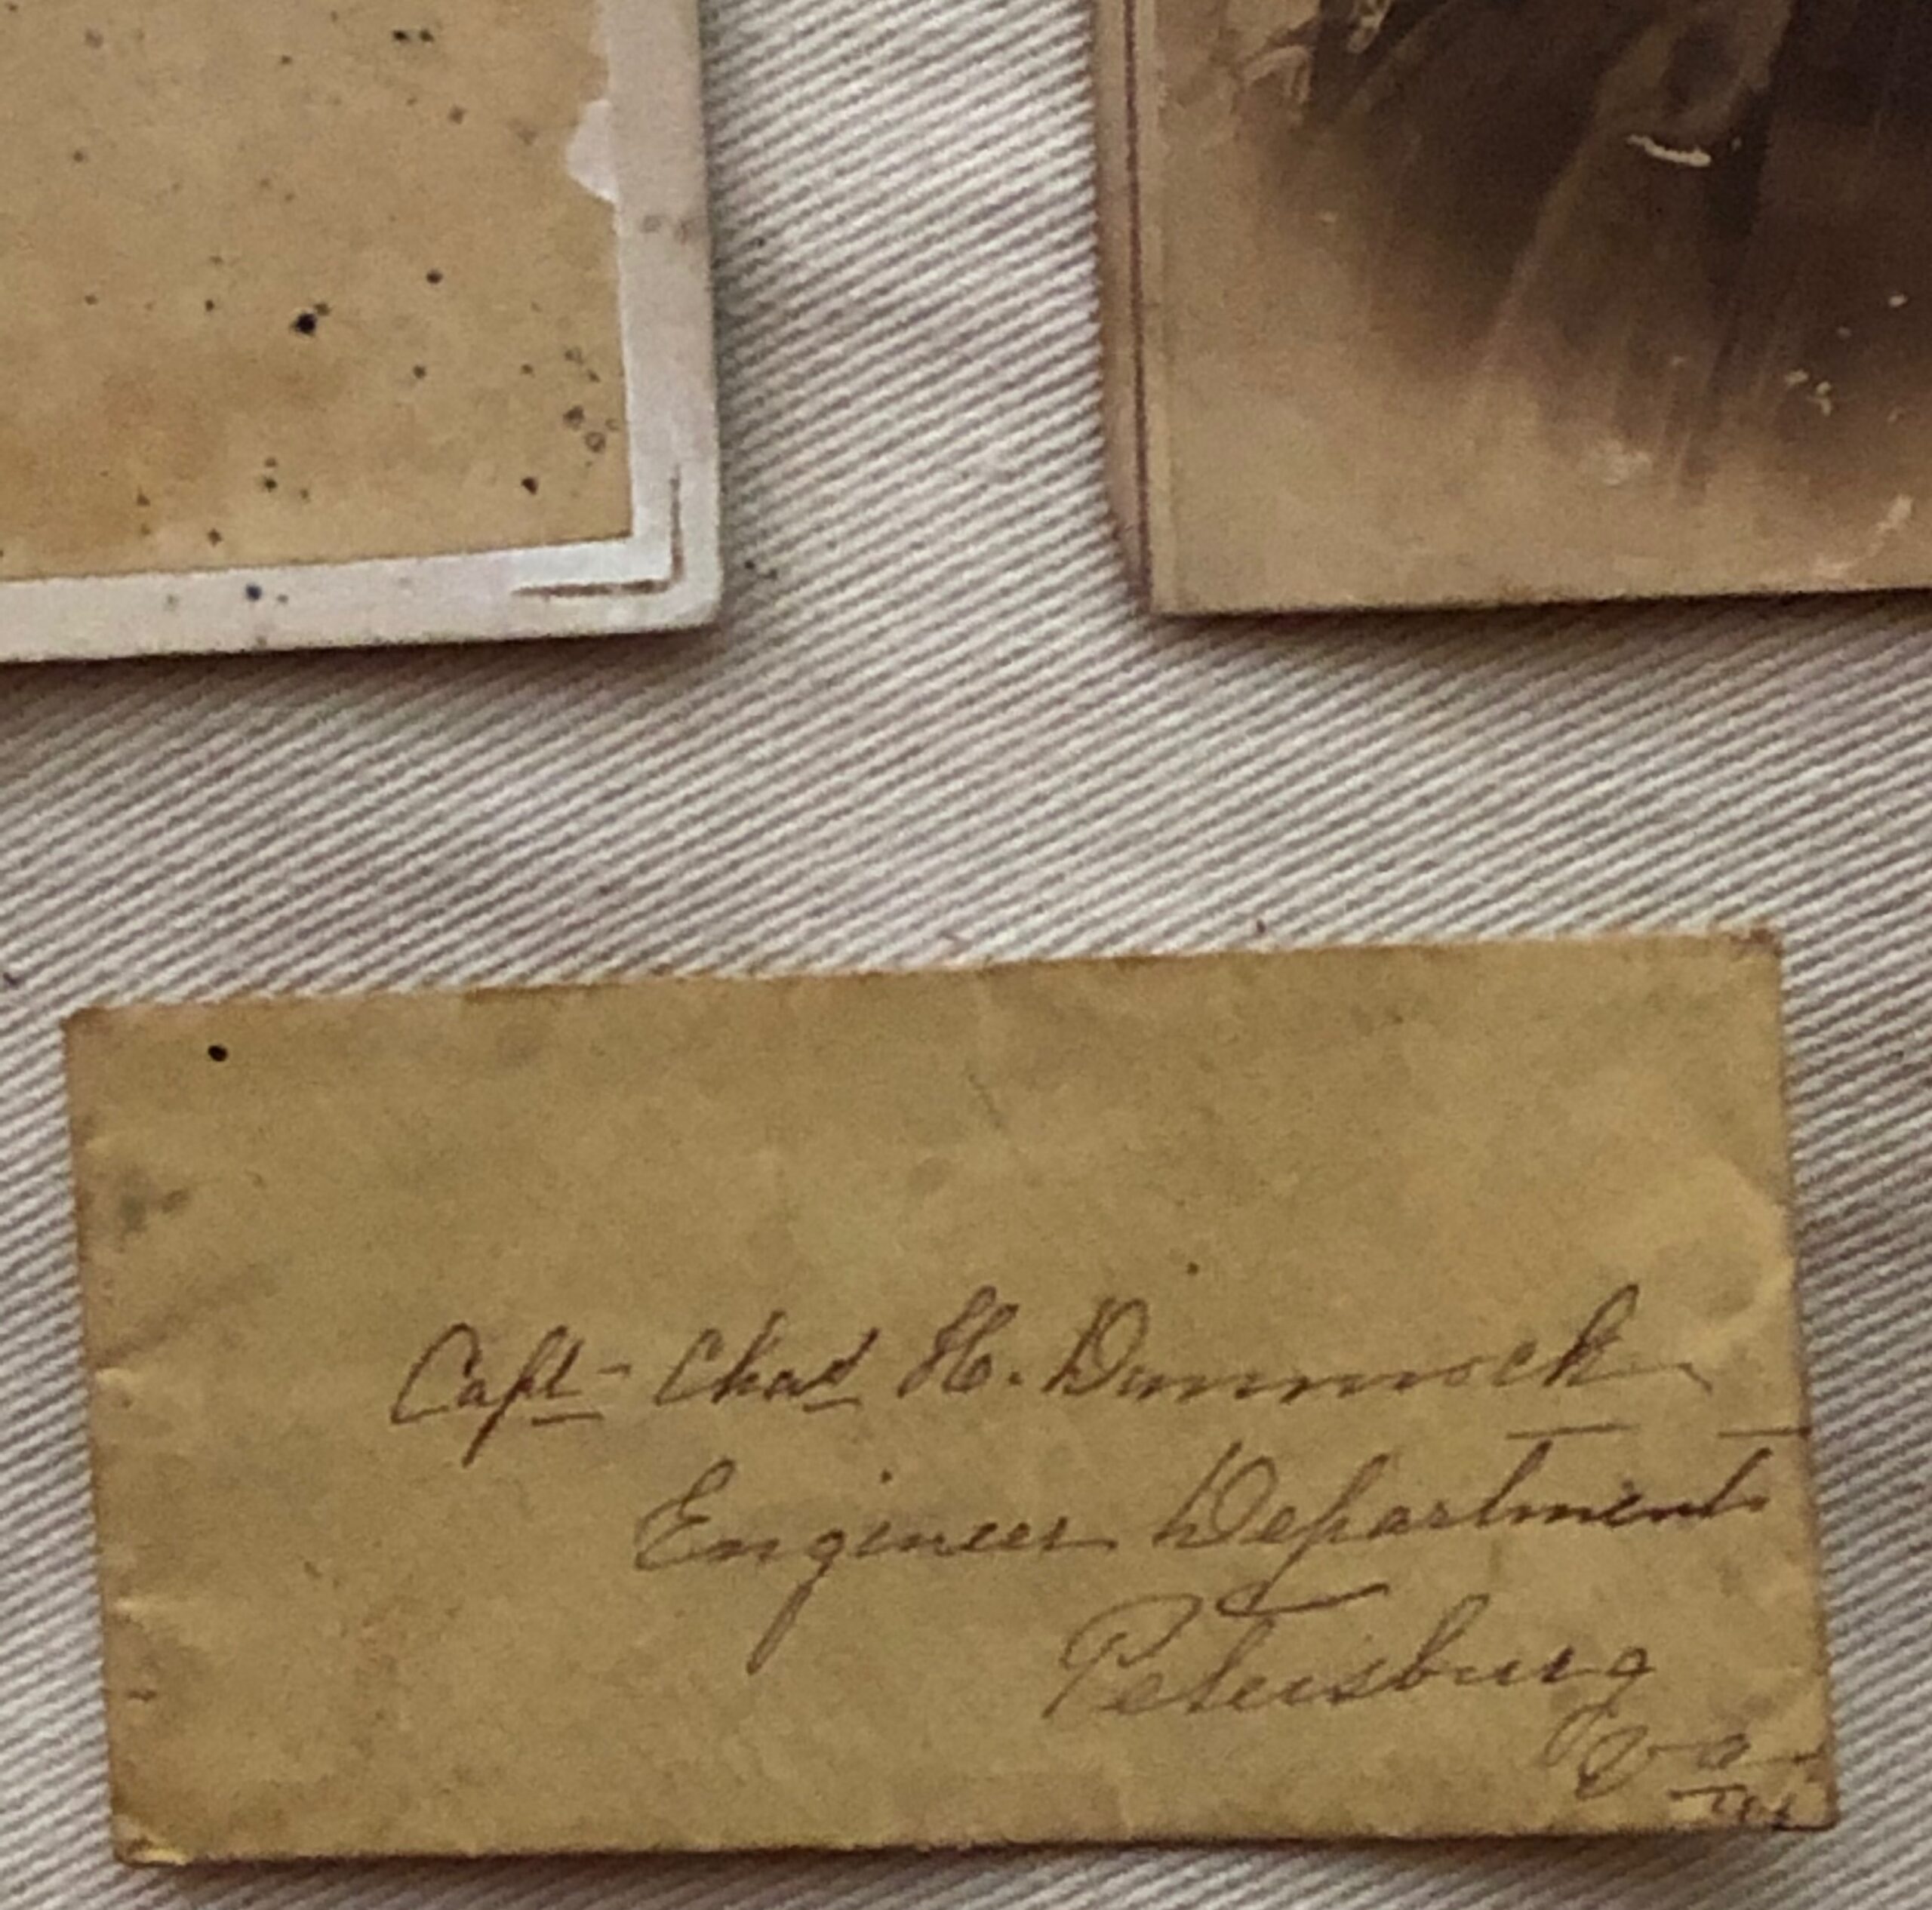 Capt- Chas H. Dimmock
Engineer Department
Petersburg
Va